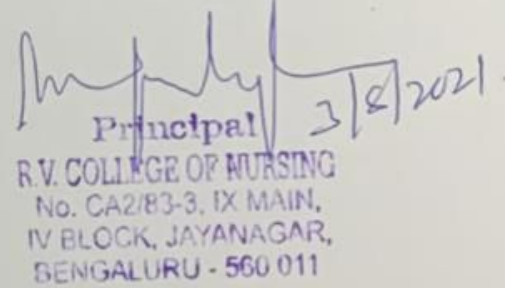 3/8/2021.
Principal
R.V. COLLEGE OF NURSING
No. CA2/83-3, IX MAIN,
IV BLOCK, JAYANAGAR,
BENGALURU - 560 011